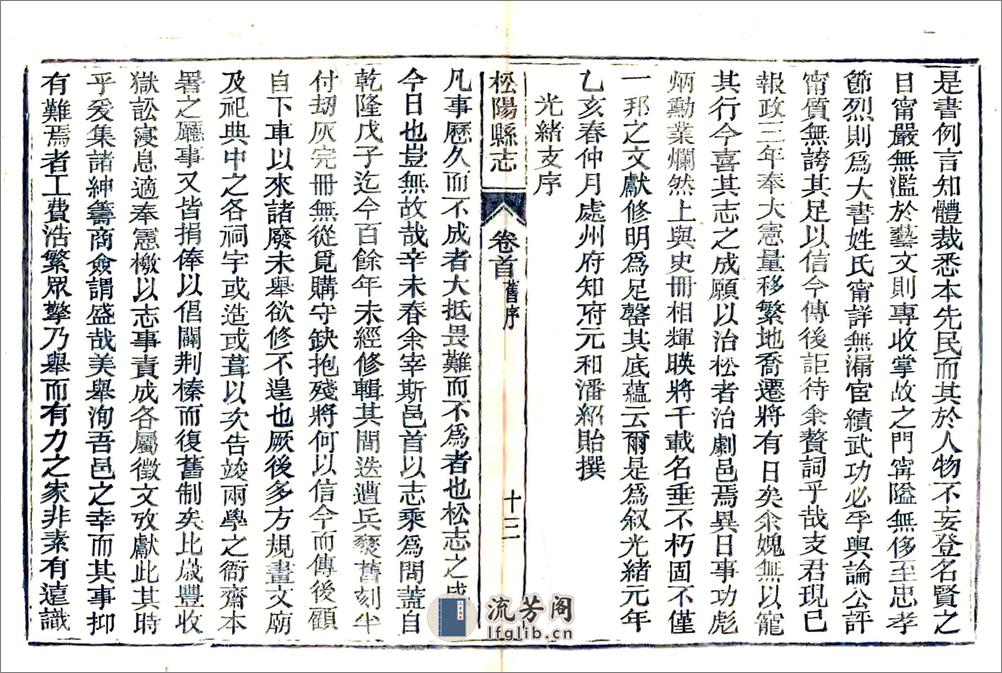 是書例言知體裁悉本先民而其於人物不妄登名賢之
目甯嚴無濫於藝文則專收掌故之門甯隘無侈至忠孝
節烈則爲大書姓氏甯詳無漏宦績武功必孚輿論公評
甯質無誇其足以信今傳後詎待余贅詞乎哉支君現已
報政三年奉大憲量移繁地喬遷將有日矣余媿無以寵
其行今喜其志之成願以治松者治劇邑焉異日事功彪
炳勳業爛然上與史冊相輝暎將千載名垂不朽固不僅
一邦之文獻修明爲足罄其底蘊云爾是爲叙光緒元年
乙亥春仲月處州府知府元和潘紹貽撰
光緒支序
松陽縣志 卷首 舊序 十三
凡事歷久而不成者大抵畏難而不爲者也松志之成
今日也豈無故哉辛未春余宰斯邑首以志乘爲問蓋自
乾隆戊子迄今百餘年未經修輯其間迭遭兵燹舊刻半
付刧灰完冊無從覓購守缺抱殘將何以信今而傳後顧
自下車以來諸廢未舉欲修不遑也厥後多方規畫文廟
及祀典中之各祠宇或造或葺以次告竣兩學之衙齋本
署之廳事又皆捐俸以倡闢荆榛而復舊制矣比歲豐收
獄訟寖息適奉憲檄以志事責成各屬徵文攷獻此其時
乎爰集諸紳籌商僉謂盛哉美舉洵吾邑之幸而其事抑
有難焉者工費浩繁眾擎乃舉而有力之家非素有遠識
流芳阁
lfglib.cn